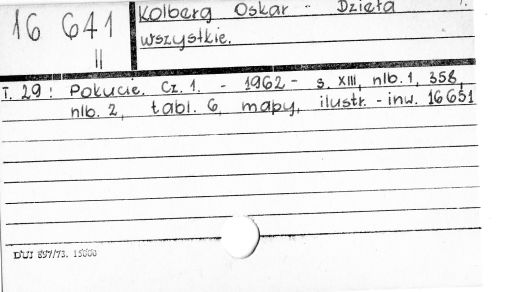 16 641
II
Kolberg Oskar - Dzieła
wszystkie.
T. 29: Pokucie. Cz. 1. - 1962 - s. XIII, nlb. 1, 358,
nlb. 2, tabl. 6, mapy, ilustr. - inw. 16651
DUJ 897/73. 15000